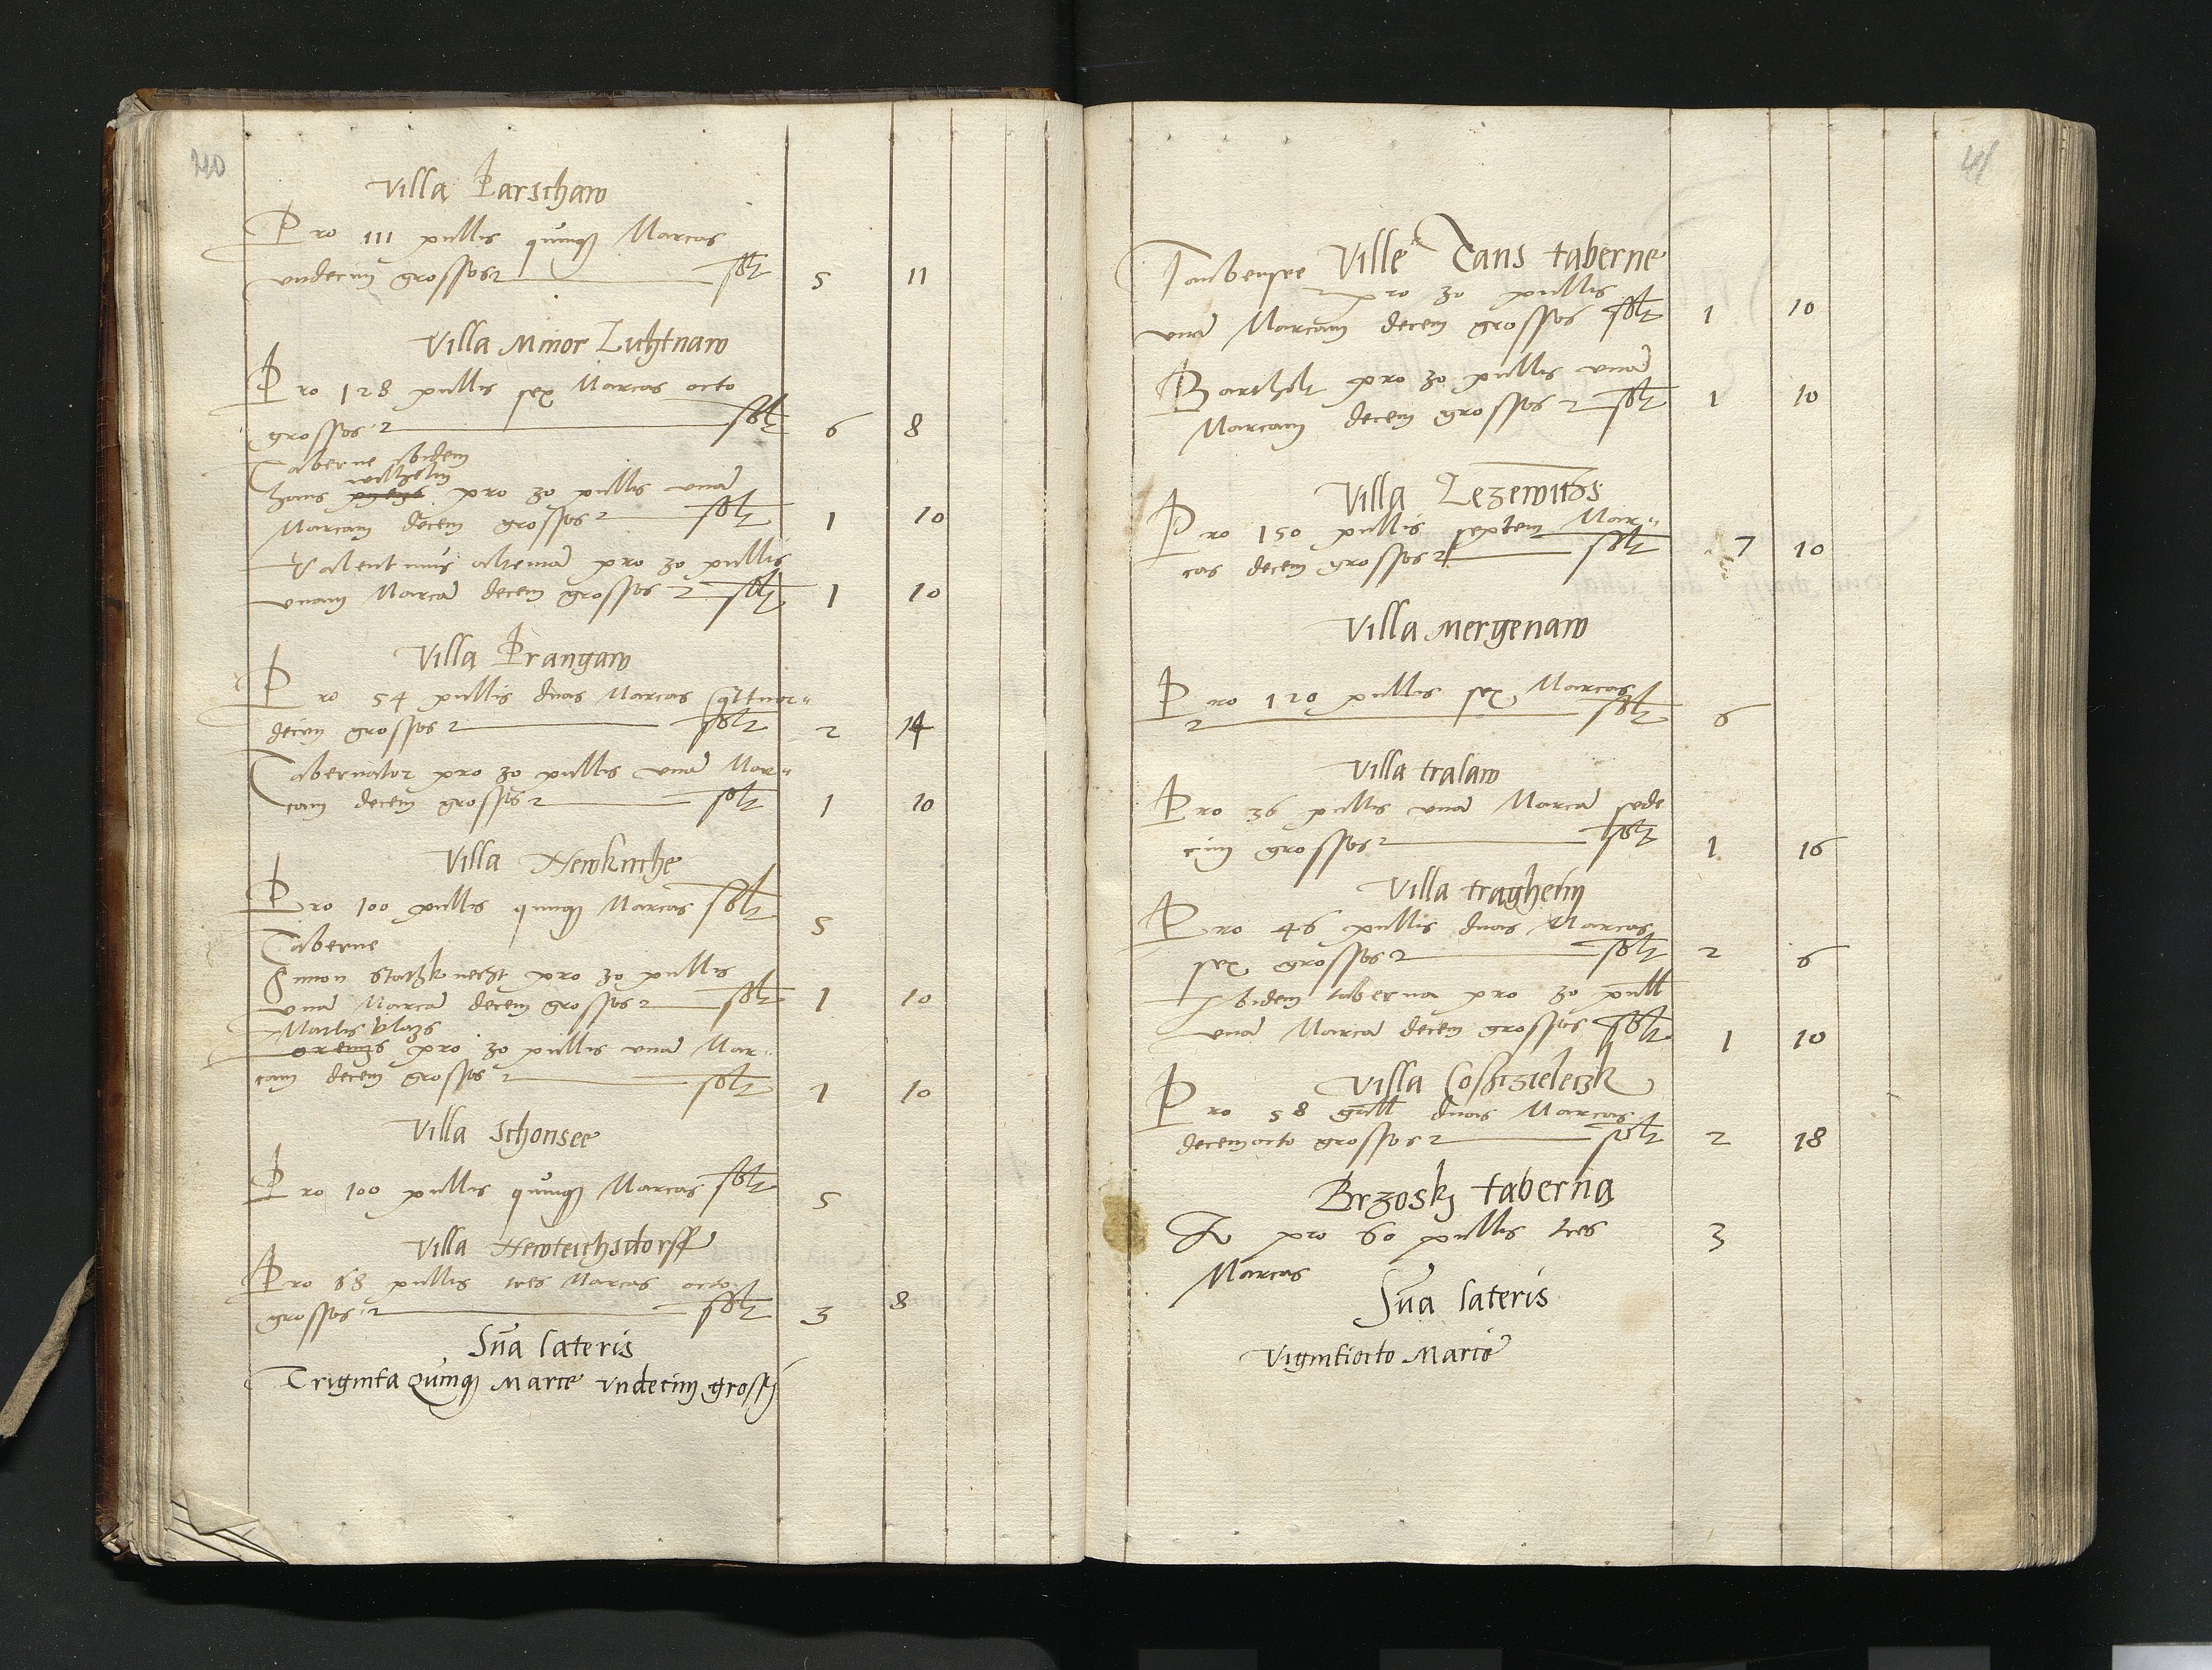 40
Villa Parschaw
Pro 111 pullis quinq Marcas
vndecim grossos solt 5 11
Villa Minor Lichtnaw
Pro 128 pullis sex Marcas octo
grossos solt 6 8
Taberne ibidem
wilhelm
hans pro 30 pullis vna
Marcam decem grossos solt 1 10
Valentinus altema pro 30 pullis
vnam Marca decem grossos solt 1 10
Villa Prangaw
Pro 54 pullis duas Marcas qttuor=
decim grossos solt 2 14
Tabernator pro 30 pullis vna Mar=
cam decem grossos solt 1 10
Villa Newkirche
Pro 100 pullis quinq Marcas solt 5
Taberne
Simon Statzknecht pro 30 pullis
vna Marca decem grossos solt 1 10
Matis vlazs
pro 30 pullis vna Mar=
cam decem grossos solt 1 10
Villa Schonsee
Pro 100 pullis quinq Marcas solt 5
Villa Newteichsdorff
Pro 68 pullis tres Marcas octo
grossos solt 3 8
Sua lateris
Triginta Quinq Marce vndecim grossy
41
Ville Tans taberne
Taubensee pro 30 pullis
vna Marcam decem grossos solt 1 10
Bartholt pro 30 pullis vna
Marcam decem grossos solt 1 10
Villa Lezewitzs
Pro 150 pullis septem Mar=
cas decem grossos solt 7 10
Villa Mergenaw
Pro 120 pullis sex Marcas
solt 6
Villa tralaw
Pro 36 pullis vna Marca sede
cim grossos solt 1 16
Villa tragheim
Pro 46 pullis duas Marcas
sex grossos solt 2 6
Ibidem taberna pro 30 pull
vna Marca decem grossos solt 1 10
Villa Coshczieleczk
Pro 58 gall duas Marcas
decemocto grossos solt 2 18
Brzosky taberna
pro 60 pullis tres 3
Marcas
Sua lateris
Vigintiocto Marce